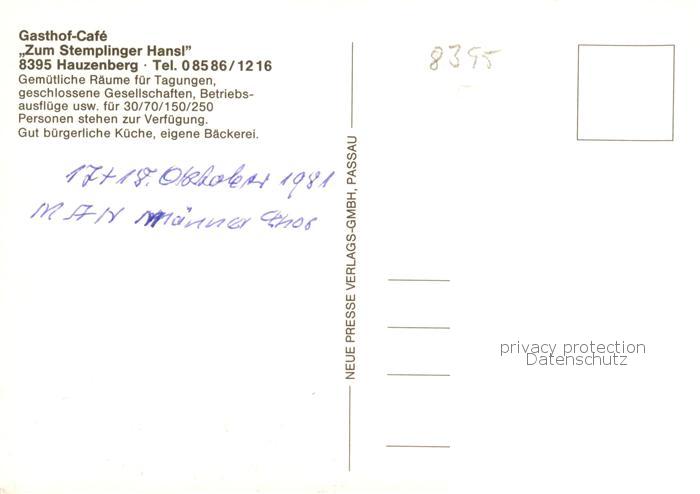 Gasthof-Café
„Zum Stemplinger Hansl”
8395 Hauzenberg · Tel. 08586/1216
Gemütliche Räume für Tagungen,
geschlossene Gesellschaften, Betriebs-
ausflüge usw. für 30/70/150/250
Personen stehen zur Verfügung.
Gut bürgerliche Küche, eigene Bäckerei.
17+18. Oktober 1981
MAN Männer Chor
NEUE PRESSE VERLAGS-GMBH, PASSAU
8395
privacy protection
Datenschutz